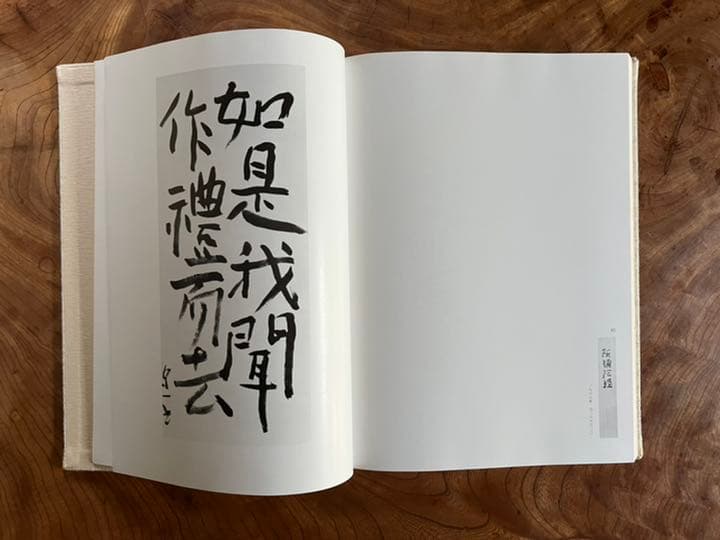 如是我聞
作禮而去
阿彌陀經